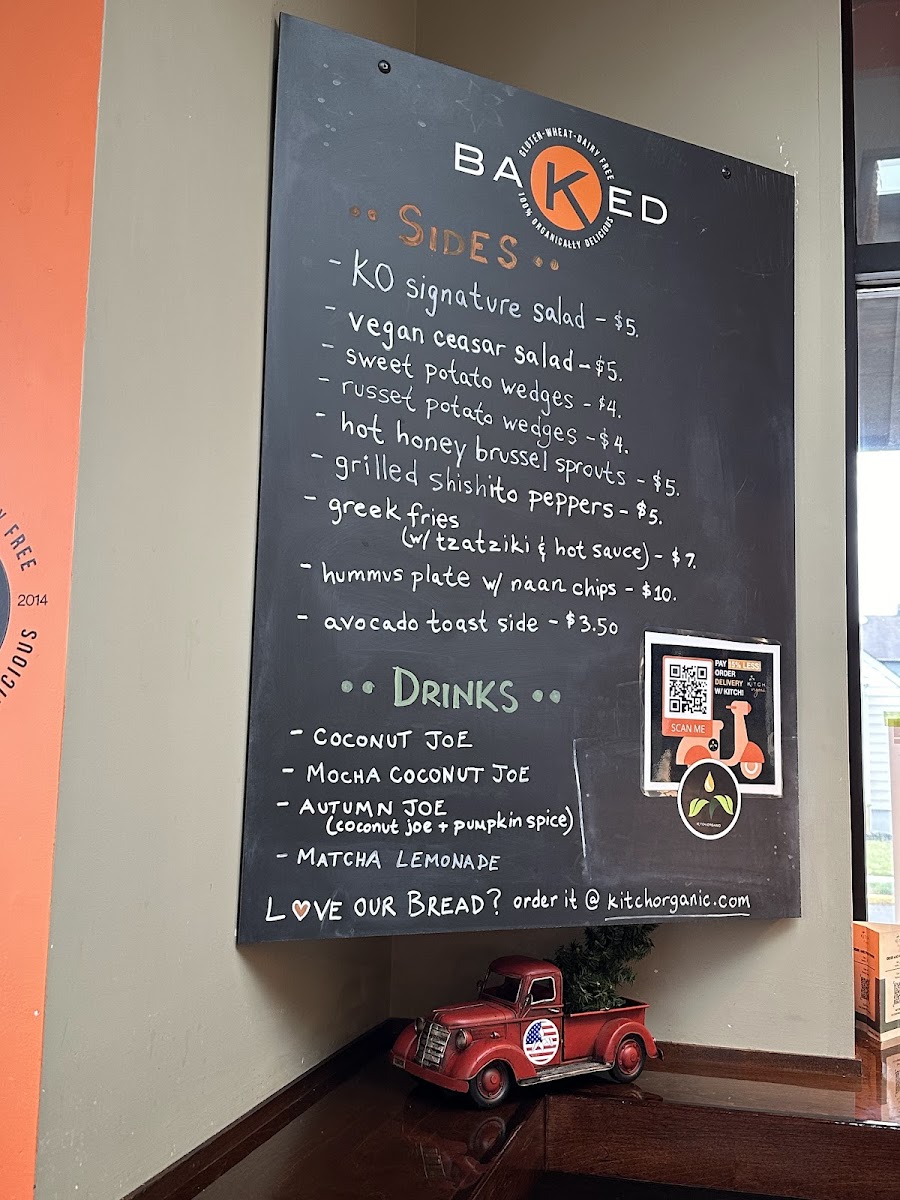 BAKED
GLUTEN-WHEAT-DAIRY FREE
100% ORGANICALLY DELICIOUS
SIDES
- KO signature salad - $5.
- vegan ceasar salad - $5.
- sweet potato wedges - $4.
- russet potato wedges - $4.
- hot honey brussel sprouts - $5.
- grilled shishito peppers - $5.
- greek fries
(w/ tzatziki & hot sauce) - $7.
- hummus plate w/ naan chips - $10.
- avocado toast side - $3.50
DRINKS
- COCONUT JOE
- MOCHA COCONUT JOE
- AUTUMN JOE
(coconut joe + pumpkin spice)
- MATCHA LEMONADE
LOVE OUR BREAD? order it @ kitchorganic.com
PAY 15% LESS!
ORDER
DELIVERY
W/ KITCH!
KITCH
organic
SCAN ME
KITCHORGANIC
FREE
2014
ICIOUS